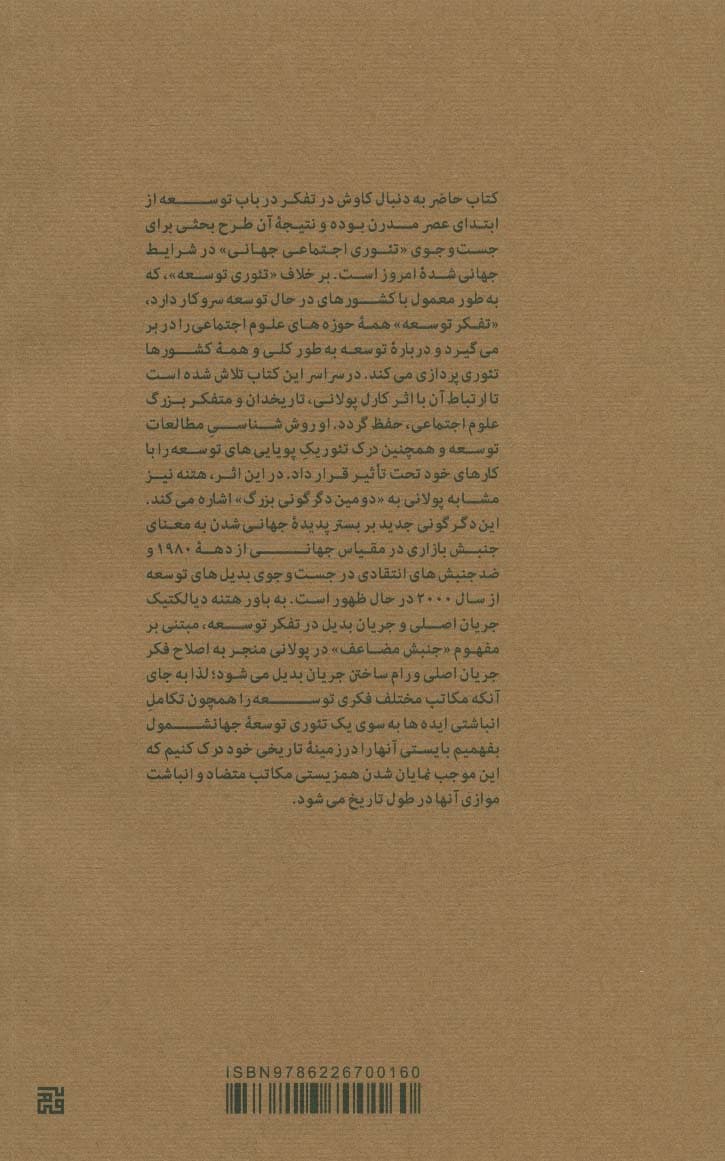 کتاب حاضر به دنبال کاوش در تفکر در باب توسعه از
ابتدای عصر مدرن بوده و نتیجهٔ آن طرح بحثی برای
جست‌وجوی «تئوری اجتماعی جهانی» در شرایط
جهانی شدهٔ امروز است. بر خلاف «تئوری توسعه»، که
به طور معمول با کشورهای در حال توسعه سروکار دارد،
«تفکر توسعه» همهٔ حوزه های علوم اجتماعی را در بر
می گیرد و دربارهٔ توسعه به طور کلی و همهٔ کشورها
تئوری پردازی می کند. در سراسر این کتاب تلاش شده است
تا ارتباط آن با اثر کارل پولانی، تاریخدان و متفکر بزرگ
علوم اجتماعی، حفظ گردد. او روش شناسیِ مطالعات
توسعه و همچنین درک تئوریکِ پویایی های توسعه را با
کارهای خود تحت تأثیر قرار داد. در این اثر، هتنه نیز
مشابه پولانی به «دومین دگرگونی بزرگ» اشاره می کند.
این دگرگونی جدید بر بستر پدیدهٔ جهانی شدن به معنای
جنبش بازاری در مقیاس جهانی از دههٔ ۱۹۸۰ و
ضدجنبش های انتقادی در جست‌وجوی بدیل های توسعه
از سال ۲۰۰۰ در حال ظهور است. به باور هتنه دیالکتیک
جریان اصلی و جریان بدیل در تفکر توسعه، مبتنی بر
مفهوم «جنبش مضاعف» در پولانی منجر به اصلاح فکر
جریان اصلی و رام ساختن جریان بدیل می شود؛ لذا به جای
آنکه مکاتب مختلف فکری توسعه را همچون تکاملِ
انباشتی ایده ها به سوی یک تئوری توسعهٔ جهانشمول
بفهمیم بایستی آنها را در زمینهٔ تاریخی خود درک کنیم که
این موجب نمایان شدن همزیستی مکاتب متضاد و انباشت
موازی آنها در طول تاریخ می شود.
ISBN9786226700160